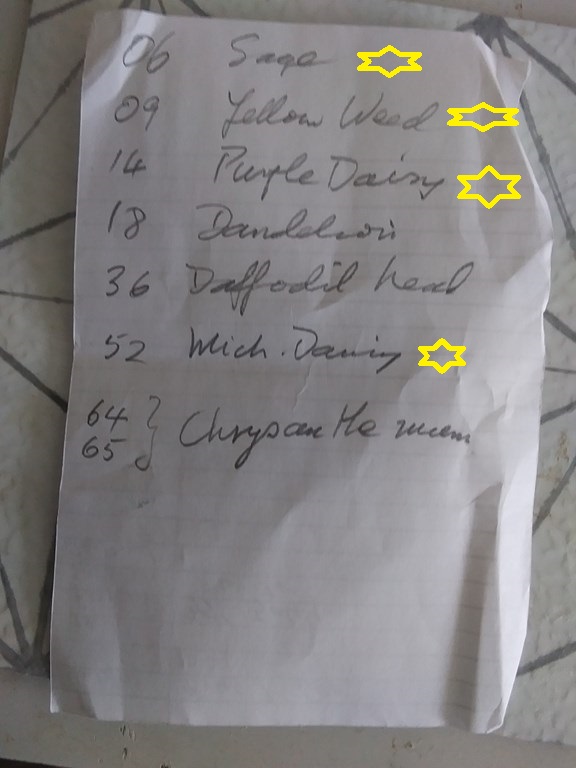 06 Sage
09 Yellow Weed
14 Purple Daisy
18 Dandelion
36 Daffodil head
52 Mich. Daisy
64 } Chrysanthemum
65